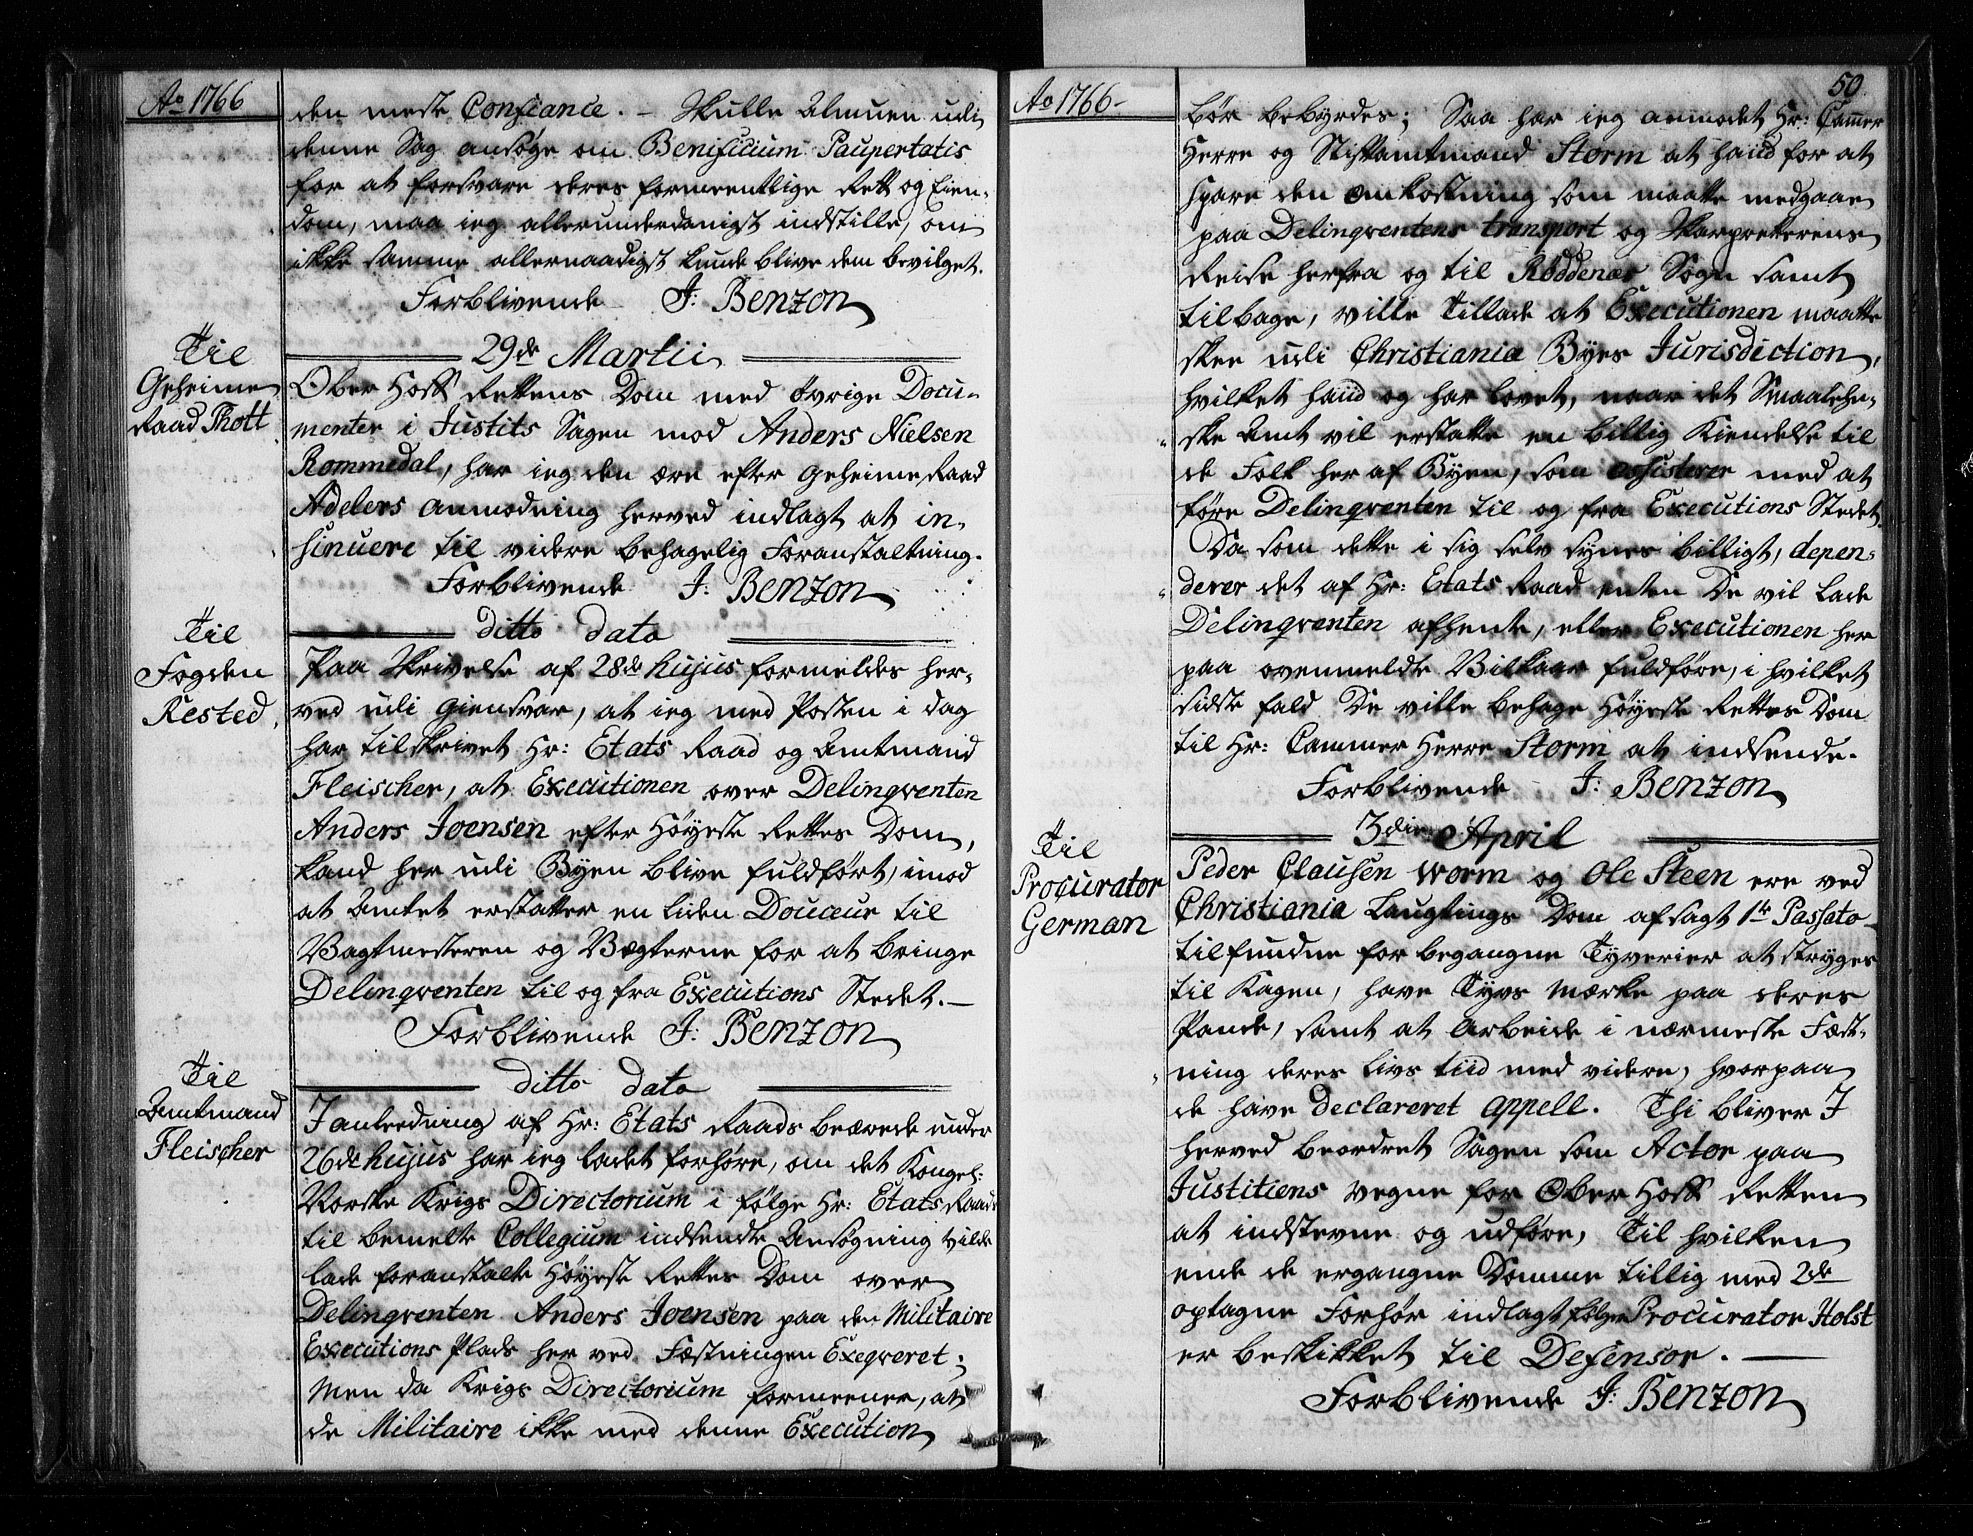 Ao 1766
den meste Confiance. – Skulle Almuen udi
denne Sag ansøge om Benificium Paupertatis
for at forsvare deres formeentlige Rett og Eien-
dom, maa ieg allerunderdanigst indstille, om
ikke samme allernaadigst kunde blive dem bevilget.
Forblivende J: Benzon
29de Martii
Til
Geheime
Raad Thott
Ober Hoff Rettens Dom med øvrige Docu-
menter i Justits Sagen mod Anders Nielsen
Rommedal, har ieg den ære efter Geheime Raad
Adelers anmodning herved indlagt at in-
sinuere til videre behagelig Foranstaltning.
Forblivende J: Benzon
ditto dato
Til
Fogden
Rested
Paa Skrivelse af 28de hujus formeldes her-
ved udi Giensvar, at ieg med Posten i dag
har tilskrivet Hr: Etats Raad og Amtmand
Fleischer, at Executionen over Delinqventen
Anders Joensen efter Høyeste Rettes Dom,
kand her udi Byen blive fuldført, imod
at Amtet erstatter en liden Douceur til
Vagtmesteren og Vægterne for at bringe
Delinqventen til og fra Executions Stedet. –
Forblivende J: Benzon
ditto dato
Til
Amtmand
Fleischer
I anledning af Hr: Etats Raads beærede under
26de hujus har ieg ladet forhøre, om det Kongel:
Norske Krigs Directorium i følge Hr: Etats Raads
til bemelte Collegium indsendte Ansøgning vilde
lade foranstalte Høyeste Rettes Dom over
Delinqventen Anders Joensen paa den Militaire
Executions Plads her ved Fæstningen Exeqveret;
Men da Krigs Directorium formeener, at
de Militaire ikke med denne Execution
Ao 1766 –
50
bør bebyrdes; Saa har ieg anmodet Hr: Cammer
Herre og Stiftamtmand Storm at hand for at
spare den Omkostning som maatte medgaae
paa Delinqventens transport og Skarpretterens
Reise herfra og til Röddenæs Sogn samt
tilbage, ville tillade at Executionen maatte
skee udi Christiania Byes Jurisdiction,
hvilket hand og har lovet, naar det Smaalehn-
ske Amt vil erstatte en billig Kiendelse til
de Folk her af Byen, som assisterer med at
føre Delinqventen til og fra Executions Stedet.
Da som dette i sig selv synes billigt, depen-
derer det af Hr: Etats Raad enten De vil lade
Delinqventen afhente, eller Executionen her
paa ovenmeldte Vilkaar fuldføre, i hvilket
sidste fald De ville behage Høyeste Rettes Dom
til Hr: Cammer Herre Storm at indsende.
Forblivende J: Benzon
3die April
Til
Procurator
German
Peder Clausen Worm og Ole Steen ere ved
Christiania Laugtings Dom afsagt 1te Passato
tilfundne for begangne Tyverier at stryges
til Kagen, have Tyvs Mærke paa deres
Pande, samt at Arbeide i nærmeste Fæst-
ning deres livs tiid med videre, hvorpaa
de have declareret appell. Thi bliver I
herved beordret Sagen som Actor paa
Justitiens vegne for Ober Hoff Retten
at indstevne og udføre, Til hvilken
ende de ergangne Domme tillig med 2de
optagne Forhør indlagt følger Procurator Holst
er beskikket til Defensor. –
Forblivende J: Benzon